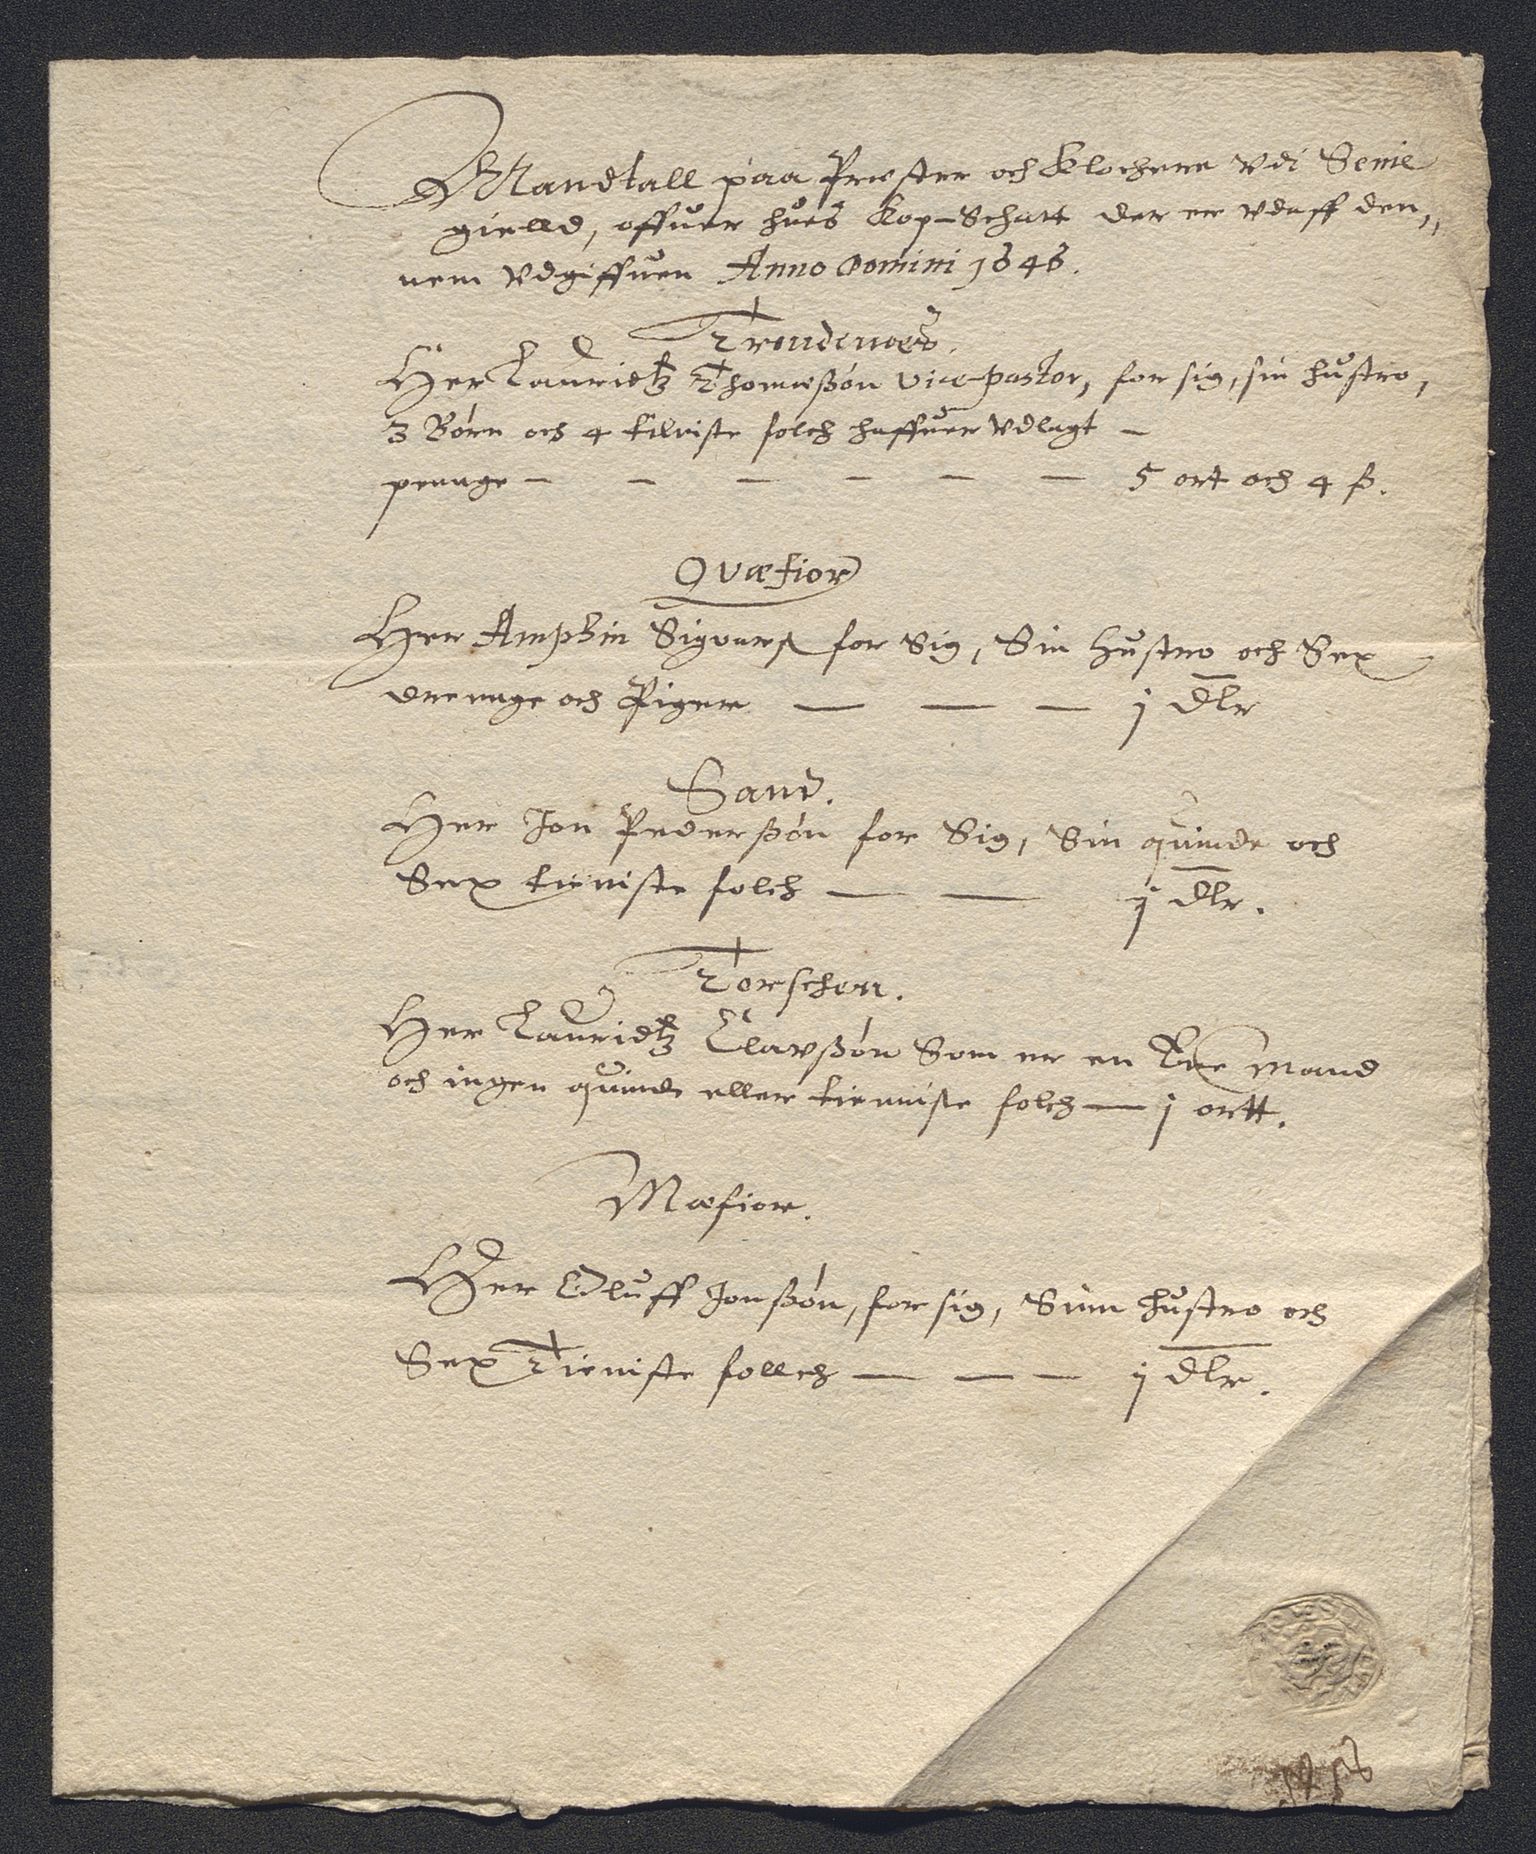 Mandtall paa Prester och Klochere Vdi Senie
gielld, offuer hues Kop-Schatt der er Vdaff den,,
nem Vdgiffuen Anno Domini 1646.
Trondenæs.
Her Lauridtz Thomæßøn Vice-pastor, for sig, sin hustro,
3 Børn och 4 tieniste folch haffuer Vdlagt -
penge - - - - - - 5 ort och 4 ß.
Qvæfior
Her Ampbin Sigvers for Sig, Sin hustro och Sex
drenge och Piger - - - j dlr
Sand.
Her Jon Pederßøn for Sig, Sin quinde och
Sex tieniste folch - - j dlr.
Torschen.
Her Lauridtz Clavßøn Som er en Mand
och ingen quinde eller tienniste folch - j ortt.
Mæfior.
Her Oluff Jonßøn, for sig, Sinn hustro och
Sex Tieniste follch - - - j dlr.